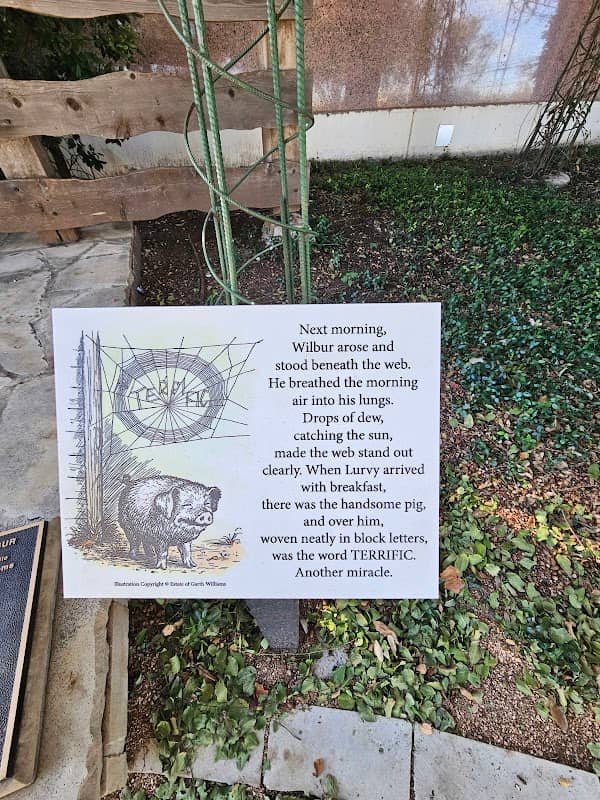 Next morning,
Wilbur arose and
stood beneath the web.
He breathed the morning
air into his lungs.
Drops of dew,
catching the sun,
made the web stand out
clearly. When Lurvy arrived
with breakfast,
there was the handsome pig,
and over him,
woven neatly in block letters,
was the word TERRIFIC.
Another miracle.
TERRIFIC
Illustration Copyright © Estate of Garth Williams